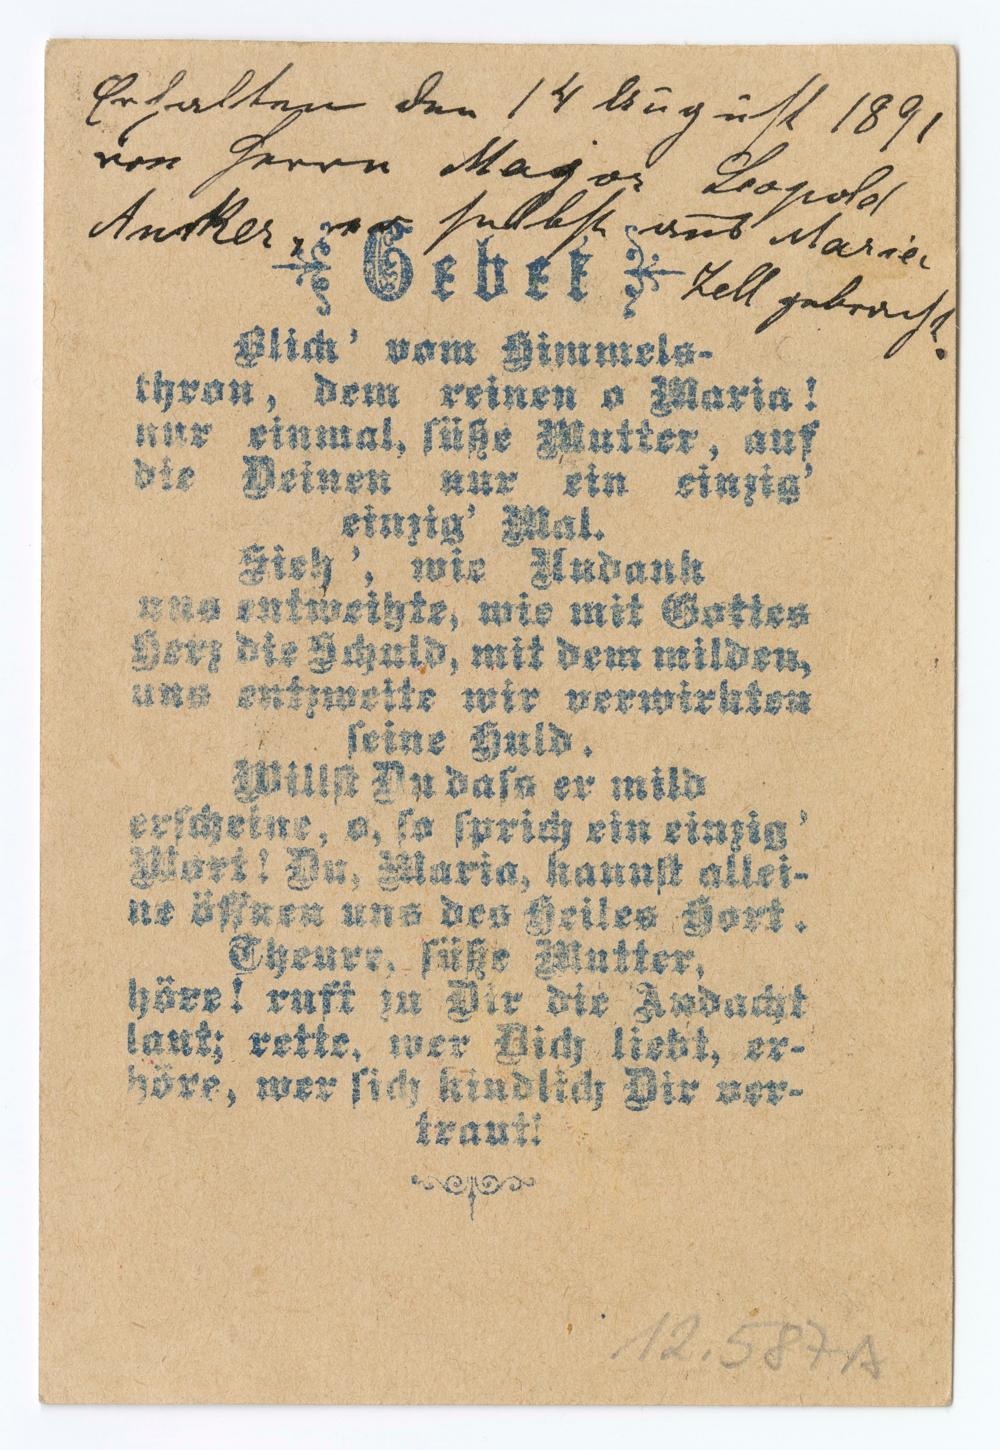 Erhalten den 14 August 1891
von Herrn Major Leopold
Anker, selbst aus Maria
Zell gebracht.
Gebet
Blick' vom Himmels-
thron, dem reinen o Maria!
nur einmal, süße Mutter, auf
die Deinen nur ein einzig'
einzig' Mal.
Sieh', wie Undank
uns entweihte, wie mit Gottes
Herz die Schuld, mit dem milden,
uns entzweite wir verwirkten
seine Huld.
Willst Du dass er mild
erscheine, o, so sprich ein einzig'
Wort! Du, Maria, kannst allei-
ne öffnen uns des Heiles Hort.
Theure, süße Mutter,
höre! ruft zu Dir die Andacht
laut; rette, wer Dich liebt, er-
höre, wer sich kindlich Dir ver-
traut!
12.587A